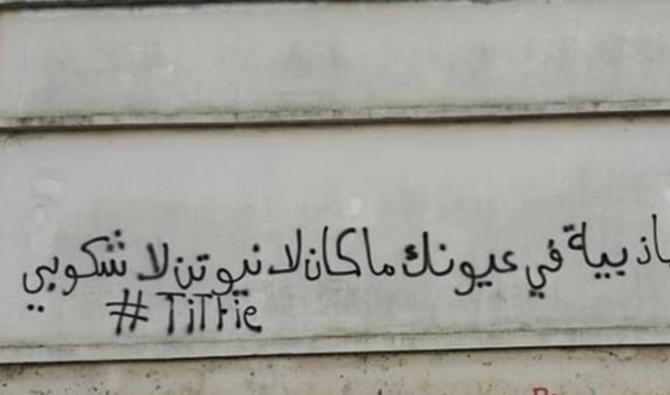 اذبية في عيونك ما كان لا نيوتن لا شكوبي
#TiTFie